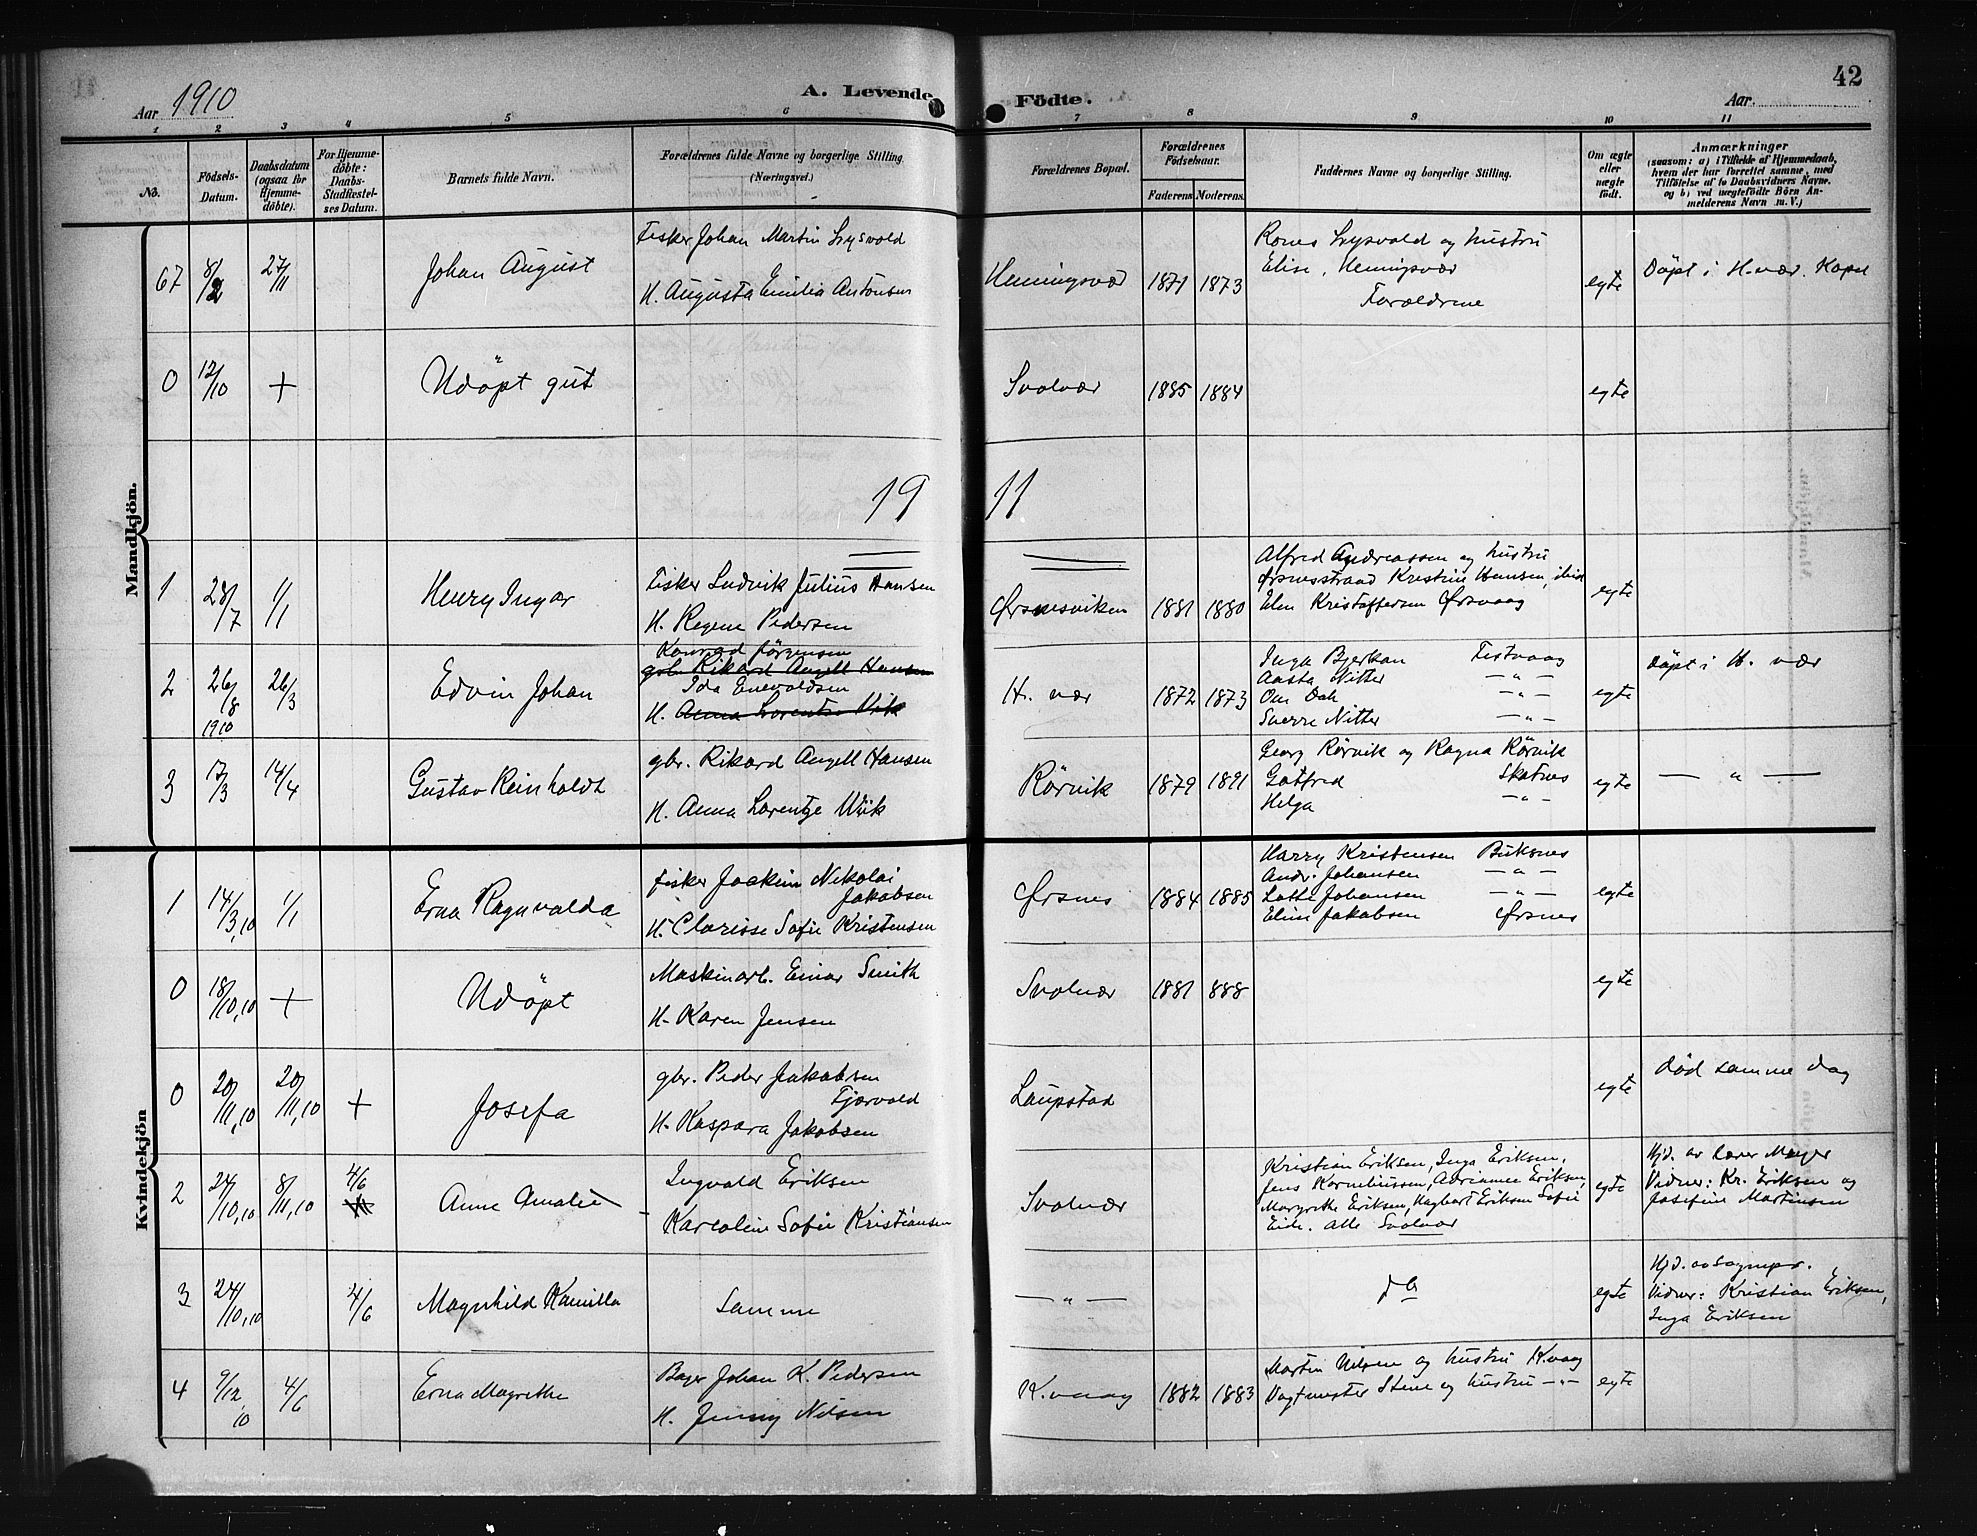 Aar 1910
A. Levende Födte.
Aar.
42
1 2 3 4 5 6 7 8 9 10 11
No.
Födsels-Datum.
Daabsdatum (ogsaa for Hjemme-döbte).
For Hjemme-döbte: Daabs-Stadfæstel-ses Datum.
Barnets fulde Navn.
Forældrenes fulde Navne og borgerlige Stilling. (Næringsvei.)
Forældrenes Bopæl.
Forældrenes Födselsaar.
Faderens Moderens.
Faddernes Navne og borgerlige Stilling.
Om ægte eller uægte födt.
Anmærkninger
(saasom: a) i Tilfælde af Hjemmedaab,
hvem der har forrettet samme, med
Tilföielse af to Daabsvidners Navne,
og b) ved uægtefödte Börn An-
melderens Navn m. V.)
Mandkjön.
67 8/2 27/11 Johan August
Fisker Johan Martin Lysvold
H. Augusta Emilia Antonsen
Henningsvær 1871 1873
Rones Lysvald og hustru
Elise, Henningsvær
Forældrene
egte
Döpt i H.vær. Kapel
0 12/10 + Udöpt gut
Svolvær 1885 1884 egte
19 11
1 28/7 1/1 Henry Ingar
Fisker Ludvik Julius Hansen
H. Regine Pedersen
Ørsnesviken 1881 1880
Alfred Andreassen og hustru
Ørsnesstrand Kristine Hansen, ibid
Elen Kristoffersen Ørsvaag
egte
2 26/8 1910 26/3 Edvin Johan
Konrad Jörgensen
gbr. Rikard Angell Hansen
Ida Enevoldsen
H. Anna Lorentze Vik
H. vær 1872 1873
Inga Bjerkan Festvaag
Aasta Nitter — " —
Om Dah — " —
Sverre Nitter — " —
egte
Döpt i H. vær
3 17/3 14/4 Gustav Reinholdt
gbr. Rikard Angell Hansen
H. Anna Lorentze Wiik
Rörvik 1879 1891
Georg Rörvik og Ragna Rörvik
Gotfred Skatnes
Helga — " —
egte
— " —
Kvindekjön
1 14/3,10 1/1 Erna Ragnvalda
fisker Joakim Nikolai
Jakobsen
H. Clarisse Sofie Kristensen
Ørsnes 1884 1885
Harry Kristensen Buksnes
Andr. Johansen — " —
Lotte Johansen — " —
Elise Jakobsen Ørsnes
egte
0 18/10,10 + Udöpt
Maskinarb. Einar Smith
H. Karen Jensen
Svolvær 1881 888 egte
0 20/11,10 20/11,10 + Josefa
gbr. Peder Jakobsen
Fjærvold
H. Kaspara Jakobsen
Laupstad egte
död samme dag
2 24/10,10 8/11,10 4/6 Anne Amalie
Ingvald Eriksen
Karoline Sofie Kristiansen
Svolvær
Kristian Eriksen, Inga Eriksen,
Jens Korneliussen, Adrianne Eriksen,
Margrethe Eriksen, Hagbart Eriksen Sofie
Eide. alle Svolvær
egte
Hjd. av lærer Meyer
Vidner: Kr. Eriksen og
Josefine Martinsen
3 24/10,10 4/6 Magnhild Kamilla
Samme
— " —
do
egte
Hjd. av sogmpr.
Vidner: Kristian Eriksen,
Inga Eriksen
4 9/12 10 4/6 Erna Magrethe
Bager Johan K. Pedersen
H. Jenny Nilsen
K.vaag 1882 1883
Martin Nilsen og hustru K.vaag
Vagtmester Stene og hustru — " —
egte